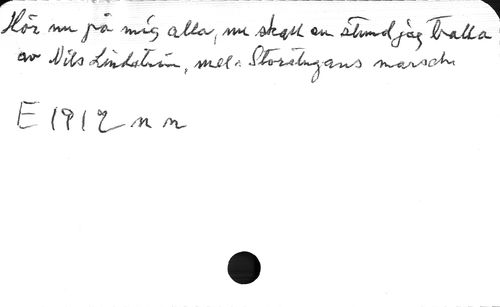 Hör nu på mig alla, nu skall en stund jag tralla
av Nils Lindström, mel: Storstugans marsch
E 1912 n n